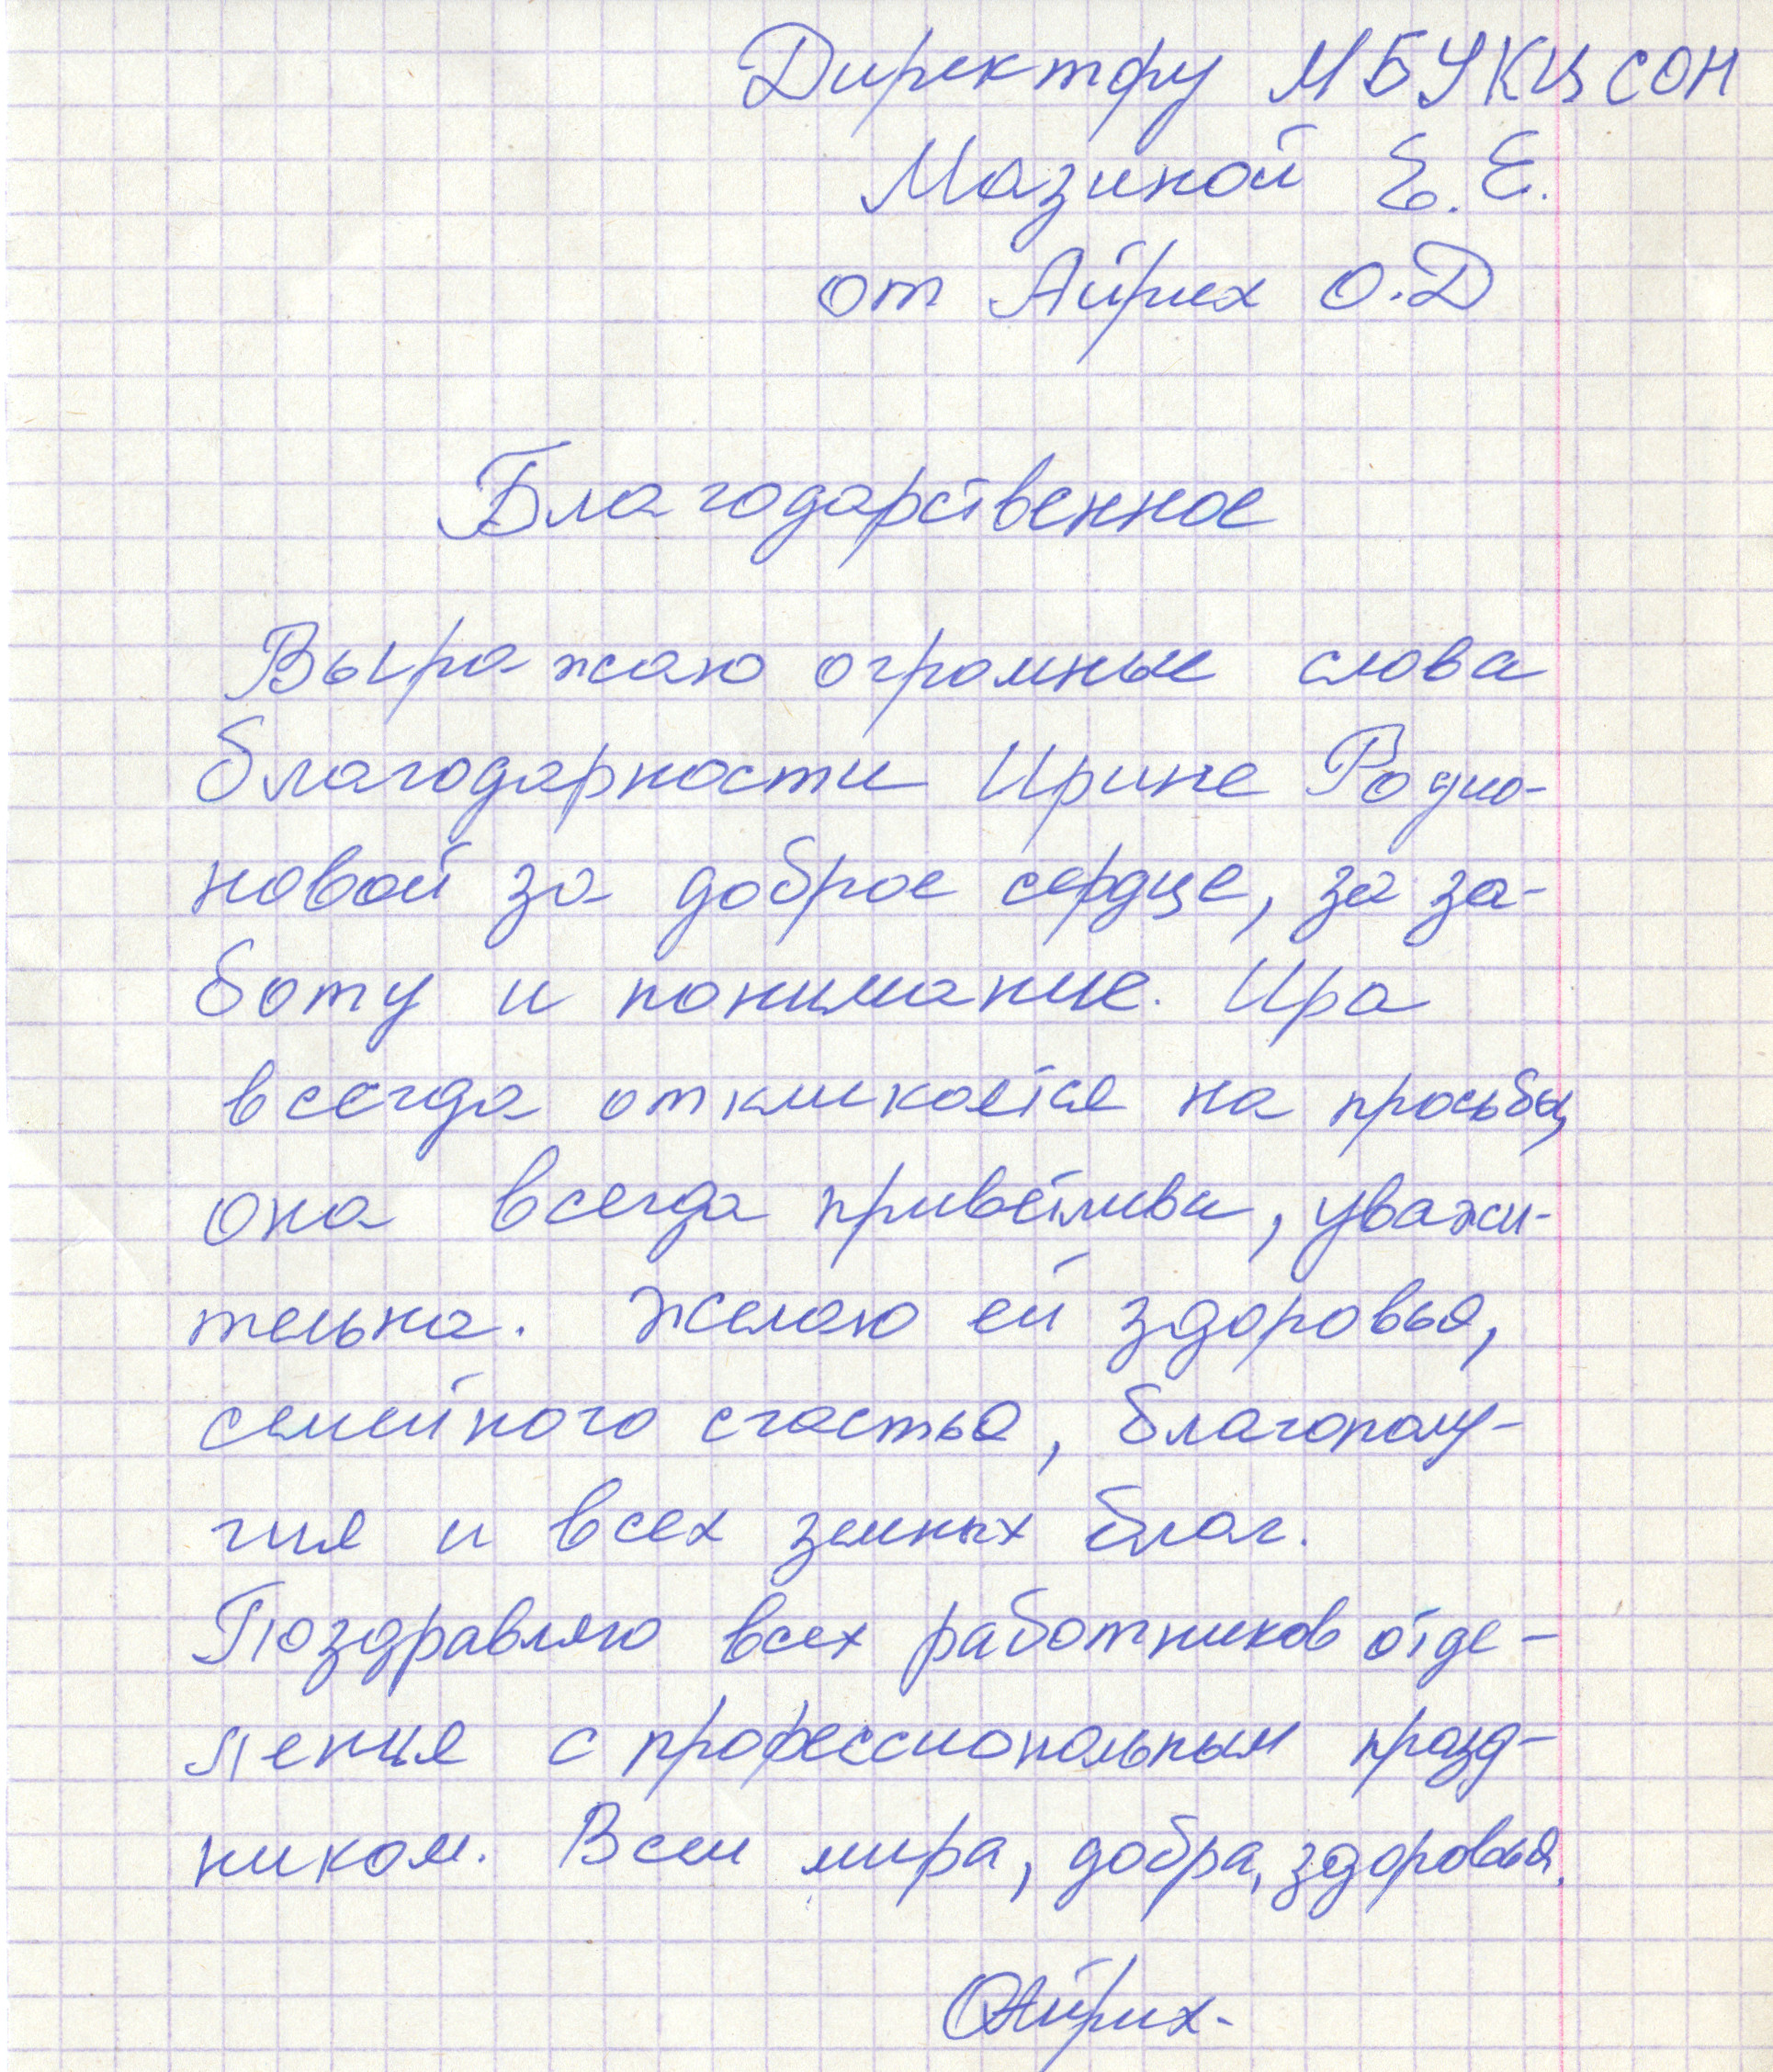 Директору МБУ КЦСОН
Мазиной Е.Е.
от Айрих О.Д
Благодарственное
Выражаю огромные слова
благодарности Ирине Родио-
новой за доброе сердце, за за-
боту и понимание. Ира
всегда откликается на просьбы,
она всегда приветлива, уважи-
тельна. Желаю ей здоровья,
семейного счастья, благополу-
чия и всех земных благ.
Поздравляю всех работников отде-
ления с профессиональным празд-
ником. Всем мира, добра, здоровья.
ОАйрих.